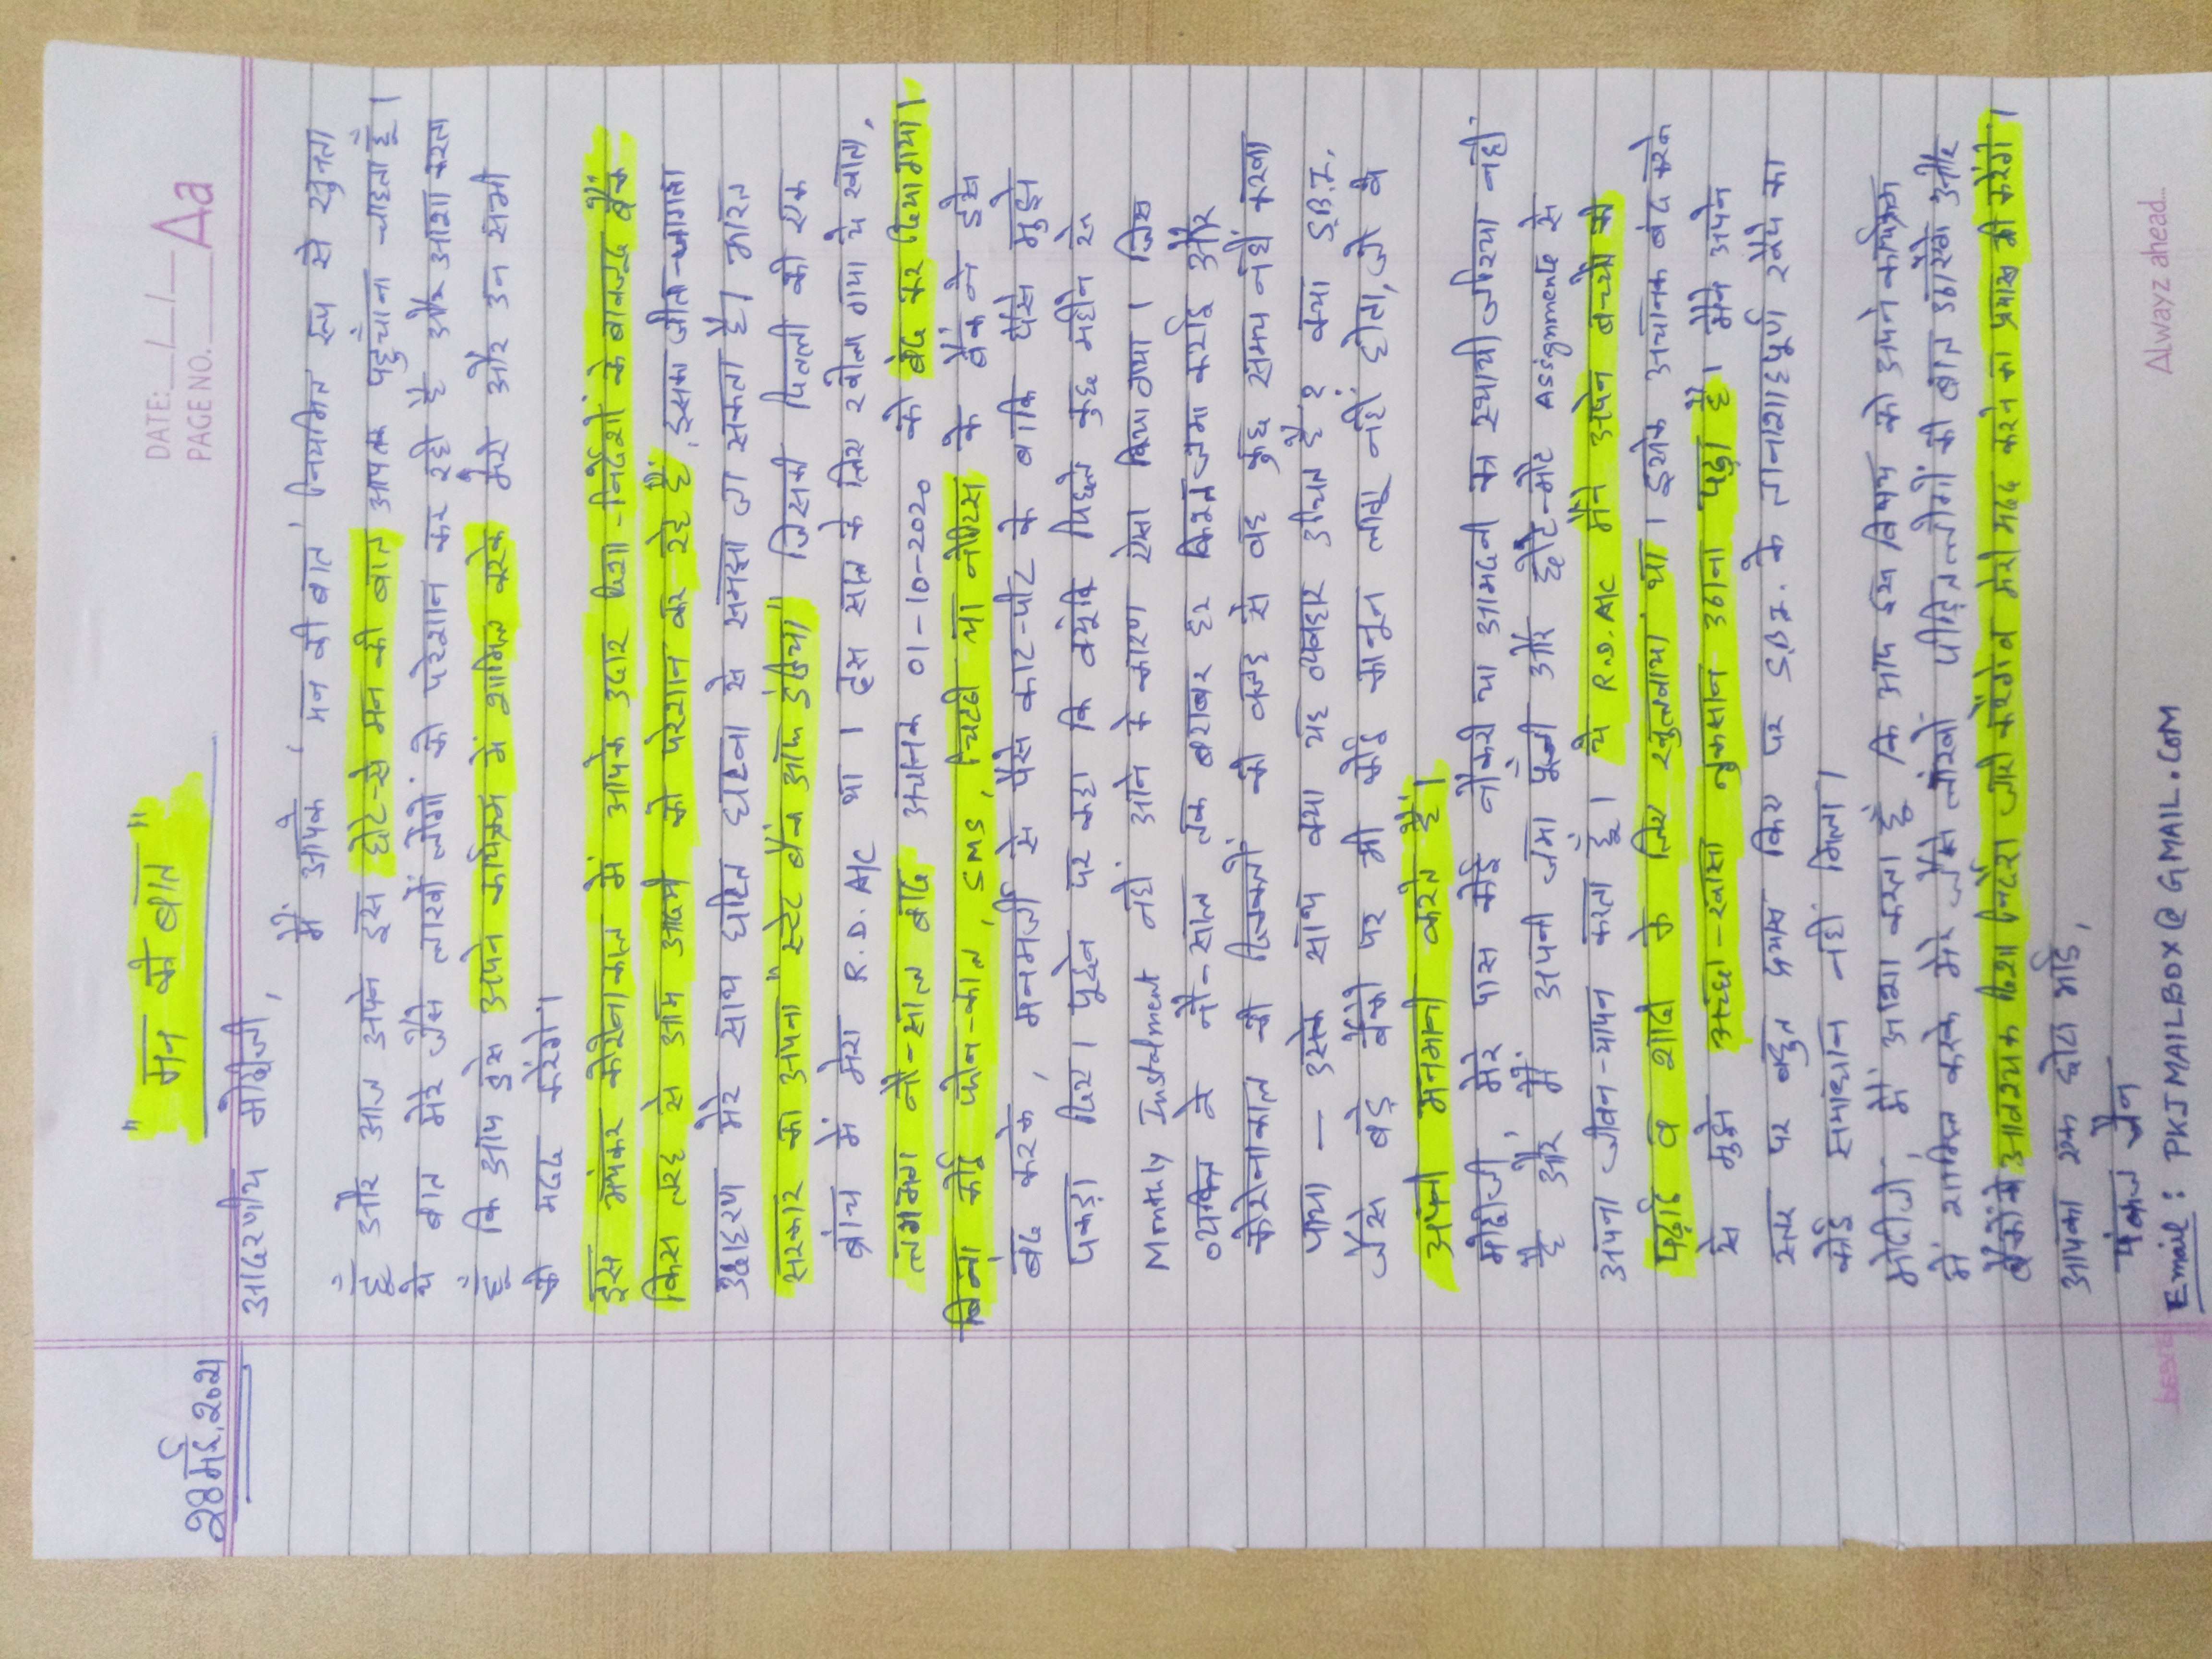 DATE: __/__/__
PAGE NO. Aa
28 मई, 2021
" मन की बात "
आदरणीय मोदीजी,
मैं आपके 'मन की बात' नियमित रूप से सुनता
हूँ और आज अपने इस छोटे-से मन की बात आपतक पहुँचाना चाहता हूँ।
ये बात मेरे जैसे लाखों लोगों को परेशान कर रही है और आशा करता
हूँ कि आप इसे अपने कार्यक्रम में शामिल करके मेरी और उन सभी
की मदद करेंगे।
इस भयंकर कोरोनाकाल में आपके उदार दिशा-निर्देशों के बावजूद बैंक
किस तरह से आम आदमी को परेशान कर रहे हैं, इसका जीता-जागता
उदाहरण मेरे साथ घटित घटना से समझा जा सकता है। भारत
सरकार का अपना "स्टेट बैंक ऑफ इंडिया" जिसकी पितली की एक
ब्रांच में मेरा R.D. A/C था। दस साल के लिए खोला गया ये खाता,
लगभग नौ-साल बाद अचानक 01-10-2020 को बंद कर दिया गया।
बिना कोई फोन-काल, SMS, चिट्ठी या नोटिस के बैंक ने इसे
बंद करके, मनमर्जी से पैसे काट-पीट के बाकि पैसे मुझे
पकड़ा दिए। पूछने पर कहा कि क्यूंकि पिछले कुछ महीने से
Monthly Instalment नहीं आने के कारण ऐसा किया गया। जिस
व्यक्ति ने नौ-साल तक बराबर हर किश्त जमा कराई और
कोरोनाकाल की दिक्कतों की वजह से वह कुछ समय नहीं करवा
पाया — उसके साथ क्या यह व्यवहार उचित है? क्या S.B.I.
जैसे बड़े बैंको पर भी कोई कानून लागू नहीं होता, जो वे
अपनी मनमानी करते हैं।
मोदीजी, मेरे पास कोई नौकरी या आमदनी का स्थायी जरिया नहीं
है और मैं अपनी जमा पूँजी और छोटे-मोटे Assignments से
अपना जीवन-यापन करता हूँ। ये R.D. A/C मैंने अपने बच्चों की
पढ़ाई व शादी के लिए खुलवाया था। इसके अचानक बंद करने
से मुझे अच्छा-खासा नुकसान उठाना पड़ा है। मैंने अपने
स्तर पर बहुत प्रयास किए पर S.B.I. के तानाशाहपूर्ण रवैये का
कोई समाधान नहीं मिला।
मोदीजी, मैं आशा करता हूँ कि आप इस विषय को अपने कार्यक्रम
में शामिल करके मेरे जैसे लाखों पीड़ित लोगों की बात उठाएंगे और
बैंकों को आवश्यक दिशा निर्देश जारी करेंगे व मेरी मदद करने का प्रयास भी करेंगे।
आपका एक छोटा भाई,
पंकज जैन
Email: PKJMAILBOX@GMAIL.COM
Alwayz ahead...